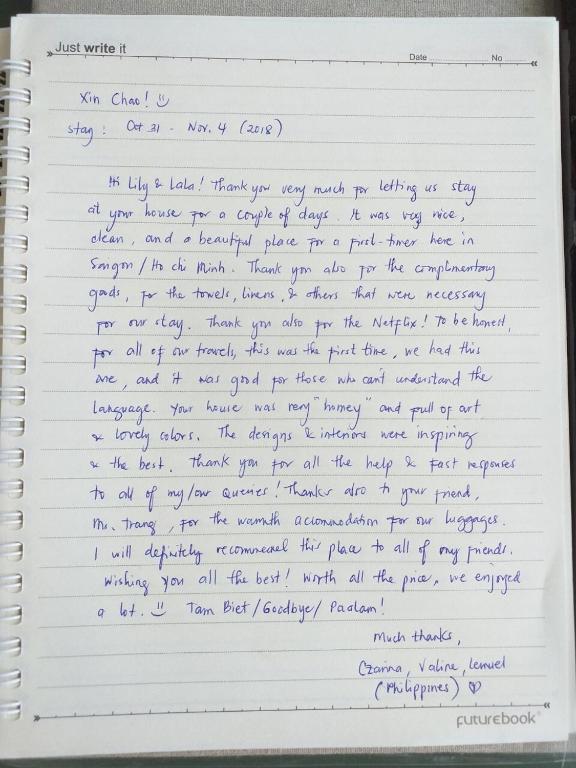 Just write it
Date No
Xin Chao! :)
Stay: Oct 31 - Nov. 4 (2018)
Hi Lily & Lala! Thank you very much for letting us stay
at your house for a couple of days. It was very nice,
clean, and a beautiful place for a first-timer here in
Saigon / Ho chi Minh. Thank you also for the complimentary
goods, for the towels, linens, & others that were necessary
for our stay. Thank you also for the Netflix! To be honest,
for all of our travels, this was the first time, we had this
one, and it was good for those who can't understand the
language. Your house was very "homey" and full of art
& lovely colors. The designs & interiors were inspiring
& the best. Thank you for all the help & fast responses
to all of my/our queries! Thanks also to your friend,
Ms. Trang, for the warmth accommodation for our luggages.
I will definitely recommend this place to all of my friends.
Wishing you all the best! Worth all the price, we enjoyed
a lot. :) Tam Biet / Goodbye / Paalam!
Much thanks,
Czarina, Valine, Lemuel
(Philippines) ♡
futurebook